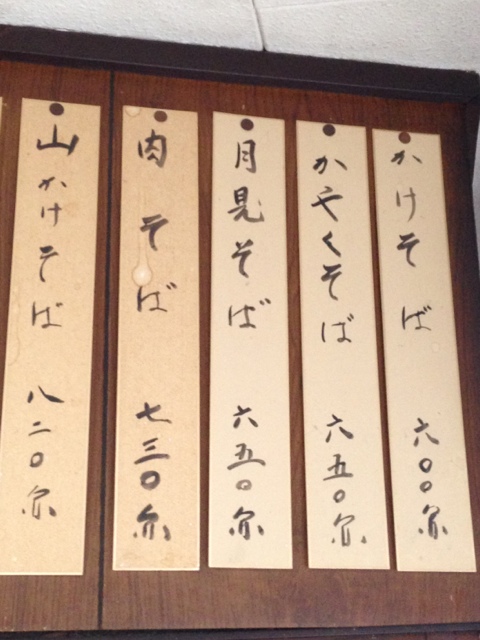 かけそば 六〇〇円
かやくそば 六五〇円
月見そば 六五〇円
肉そば 七三〇円
山かけそば 八二〇円